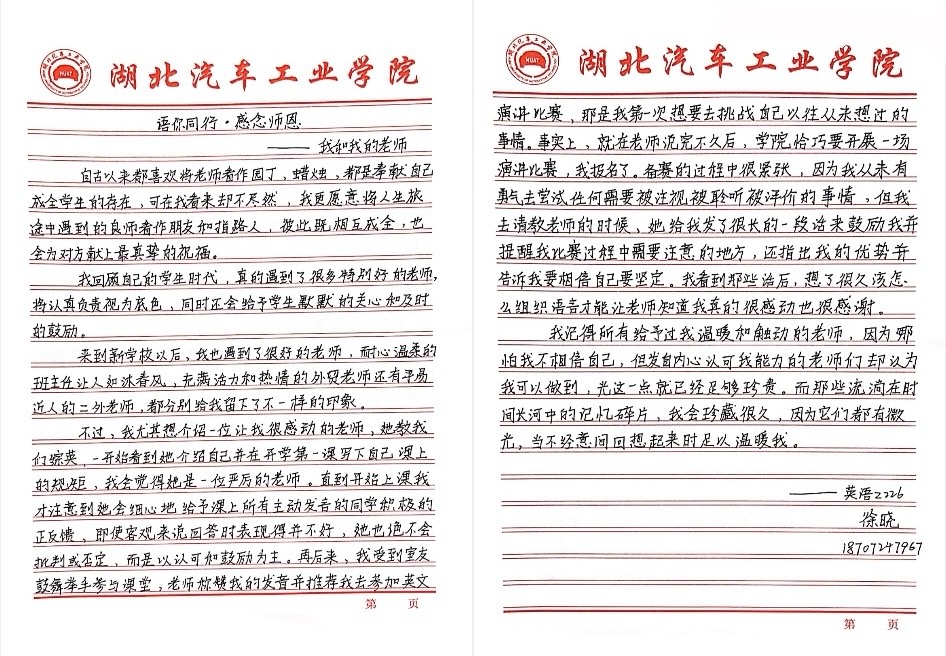 湖北汽车工业学院
HUAT
语你同行·感念师恩
——我和我的老师
自古以来都喜欢将老师看作园丁，蜡烛，都是奉献自己
成全学生的存在，可在我看来却不尽然，我更愿意将人生旅
途中遇到的良师看作朋友和指路人，彼此既相互成全，也
会为对方献上最真挚的祝福。
我回顾自己的学生时代，真的遇到了很多特别好的老师，
将认真负责视为底色，同时还会给予学生默默的关心和及时
的鼓励。
来到新学校以后，我也遇到了很好的老师，耐心温柔的
班主任让人如沐春风，充满活力和热情的外贸老师还有平易
近人的二外老师，都分别给我留下了不一样的印象。
不过，我尤其想介绍一位让我很感动的老师，她教我
们综英，一开始看到她介绍自己并在开学第一课写下自己课上
的规矩，我会觉得她是一位严厉的老师。直到开始上课我
才注意到她会细心地给予课上所有主动发言的同学积极的
正反馈，即使客观来说回答时表现得并不好，她也绝不会
批判或否定、而是以认可和鼓励为主。再后来，我受到室友
鼓舞举手参与课堂，老师称赞我的发音并推荐我去参加英文
第 页
湖北汽车工业学院
HUAT
演讲比赛，那是我第一次想要去挑战自己以往从未想过的
事情。事实上、就在老师说完不久后，学院恰巧要开展一场
演讲比赛，我报名了。备赛的过程中很紧张，因为我从未有
勇气去尝试任何需要被注视被聆听被评价的事情，但我
去请教老师的时候、她给我发了很长的一段话来鼓励我并
提醒我比赛过程中需要注意的地方，还指出我的优势并
告诉我要相信自己要坚定。我看到那些话后，想了很久该怎
么组织语言才能让老师知道我真的很感动也很感谢。
我记得所有给予过我温暖和触动的老师，因为哪
怕我不相信自己，但发自内心认可我能力的老师们却认为
我可以做到，光这一点就已经足够珍贵。而那些流淌在时
间长河中的记忆碎片，我会珍藏很久，因为它们都有微
光，当不经意间回想起来时足以温暖我。
——英语2226
徐晓
18707247967
第 页